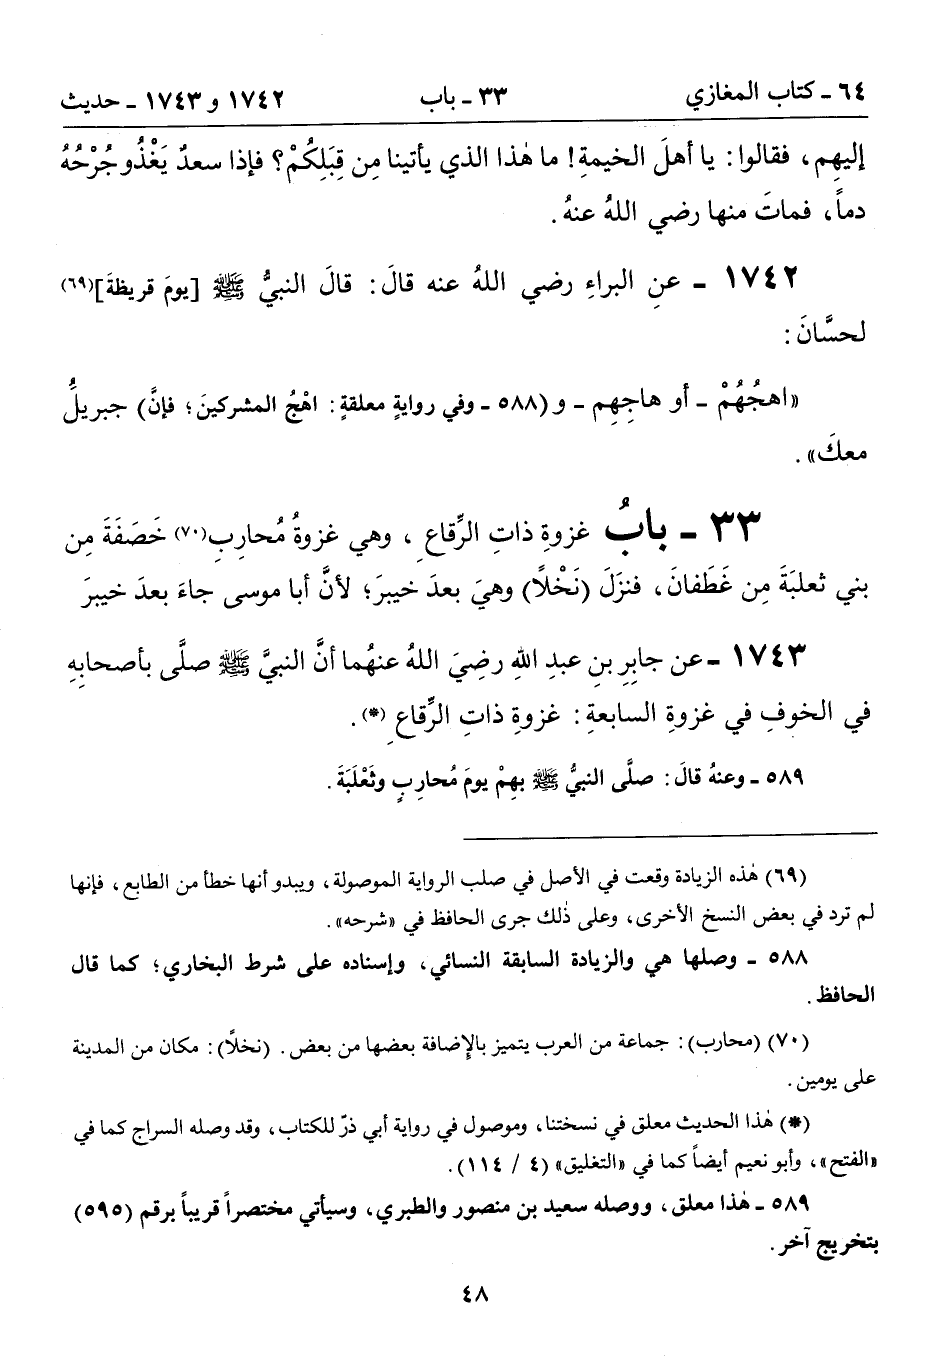 ٦٤ - كتاب المغازي ٣٣ - باب ١٧٤٢ و ١٧٤٣ - حديث
إليهِم، فقالوا: يا أهلَ الخيمةِ! ما هٰذا الذي يأتينا مِن قِبَلِكُمْ؟ فإذا سعدٌ يَغْذُو جُرْحُهُ
دماً، فماتَ منها رضي اللهُ عنهُ.
١٧٤٢ - عنِ البراءِ رضي اللهُ عنه قالَ: قالَ النبيُّ ﷺ [يومَ قريظةَ](٦٩)
لحسَّانَ:
«اهجُهُمْ - أو هاجِهِم - و (٥٨٨ - وفي روايةٍ معلقةٍ: اهْجُ المشركينَ؛ فإنَّ) جبريلُ
معكَ».
٣٣ - بابُ غزوةِ ذاتِ الرِّقاعِ، وهي غزوةُ مُحارِبِ(٧٠) خَصَفَةَ مِن
بني ثعلبَةَ مِن غَطَفانَ، فنزَلَ (نَخْلًا) وهيَ بعدَ خيبرَ؛ لأنَّ أبا موسى جاءَ بعدَ خيبرَ
١٧٤٣ - عن جابِرِ بنِ عبدِ اللهِ رضِيَ اللهُ عنهُما أنَّ النبيَّ ﷺ صلَّى بأصحابِهِ
في الخوفِ في غزوةِ السابعةِ: غزوةِ ذاتِ الرِّقاعِ (*).
٥٨٩ - وعنهُ قالَ: صلَّى النبيُّ ﷺ بِهِمْ يومَ مُحارِبٍ وثَعْلَبَةَ.
(٦٩) هٰذه الزيادة وقعت في الأصل في صلب الرواية الموصولة، ويبدو أنها خطأ من الطابع، فإنها
لم ترد في بعض النسخ الأخرى، وعلى ذٰلك جرى الحافظ في «شرحه».
٥٨٨ - وصلها هي والزيادة السابقة النسائي، وإسناده على شرط البخاري؛ كما قال
الحافظ.
(٧٠) (محارب): جماعة من العرب يتميز بالإضافة بعضها من بعض. (نخلًا): مكان من المدينة
على يومين.
(*) هٰذا الحديث معلق في نسختنا، وموصول في رواية أبي ذرّ للكتاب، وقد وصله السراج كما في
«الفتح»، وأبو نعيم أيضاً كما في «التغليق» (٤ / ١١٤).
٥٨٩ - هٰذا معلق، ووصله سعيد بن منصور والطبري، وسيأتي مختصراً قريباً برقم (٥٩٥)
بتخريج آخر.
٤٨